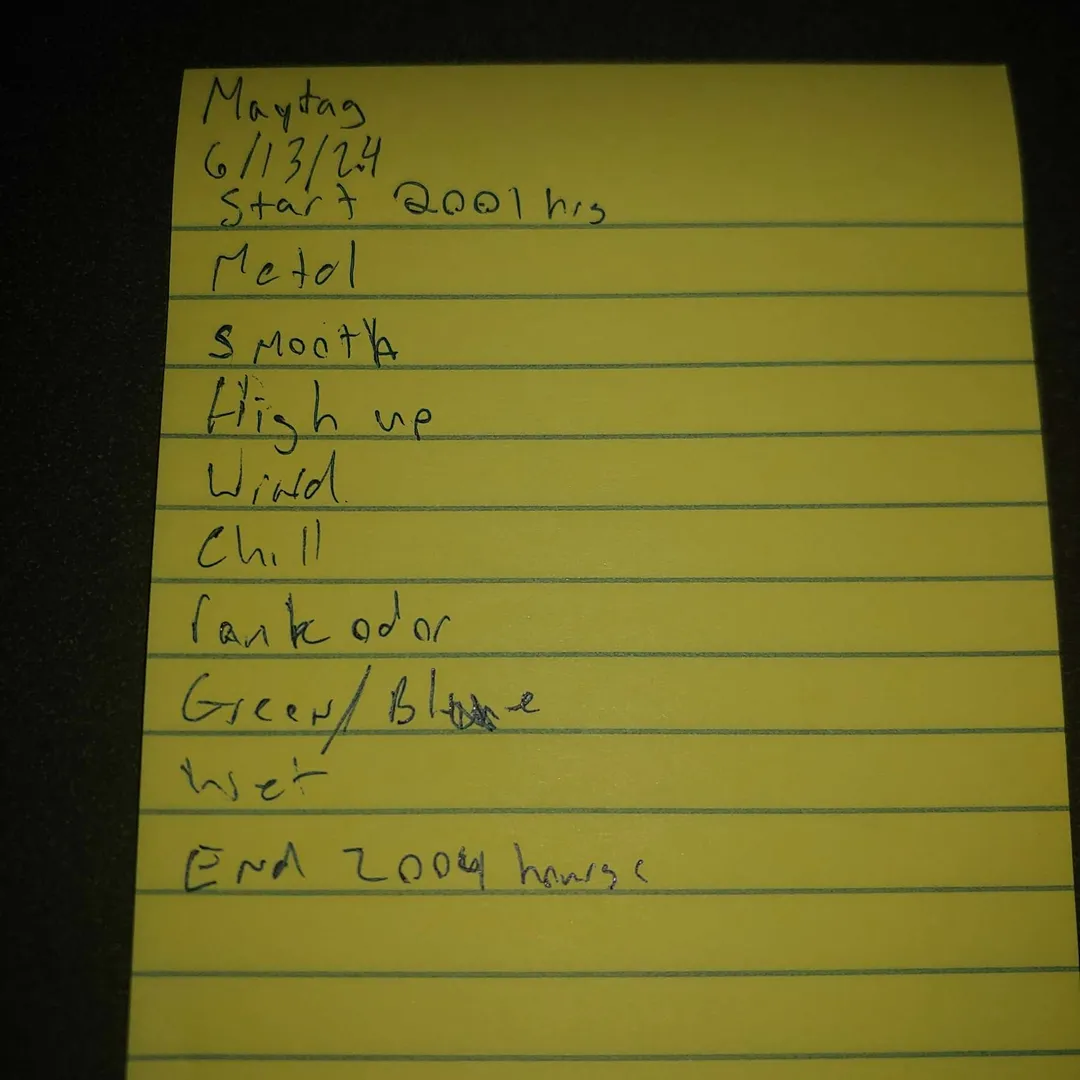 Maytag
6/13/24
Start 2001 hrs
Metal
Smooth
High up
Wind
Chill
rank odor
Green/Blue
wet
End 2004 hours